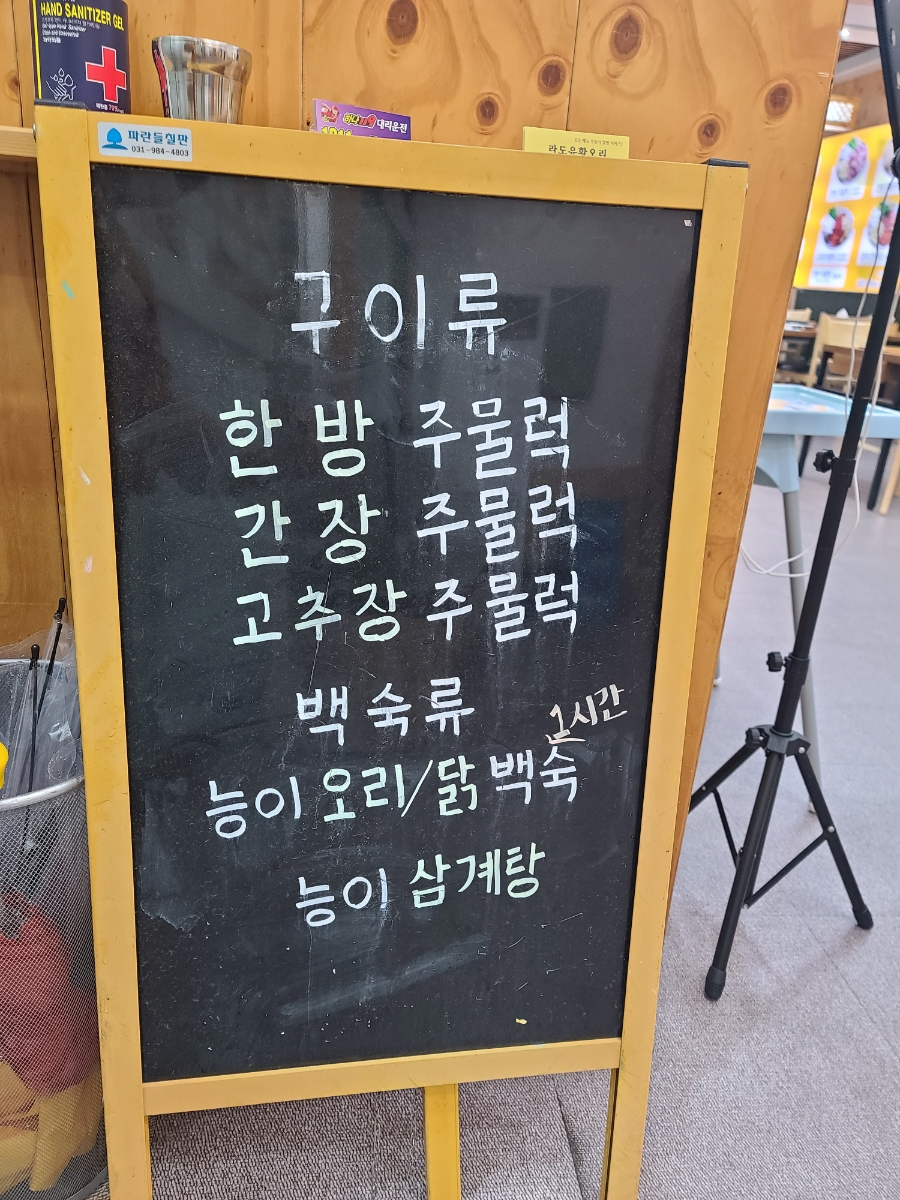 HAND SANITIZER GEL
파란들칠판
031-984-4803
대리운전
라도유황오리
구이류
한방 주물럭
간장 주물럭
고추장 주물럭
백숙류
1시간
능이 오리/닭 백숙
능이 삼계탕